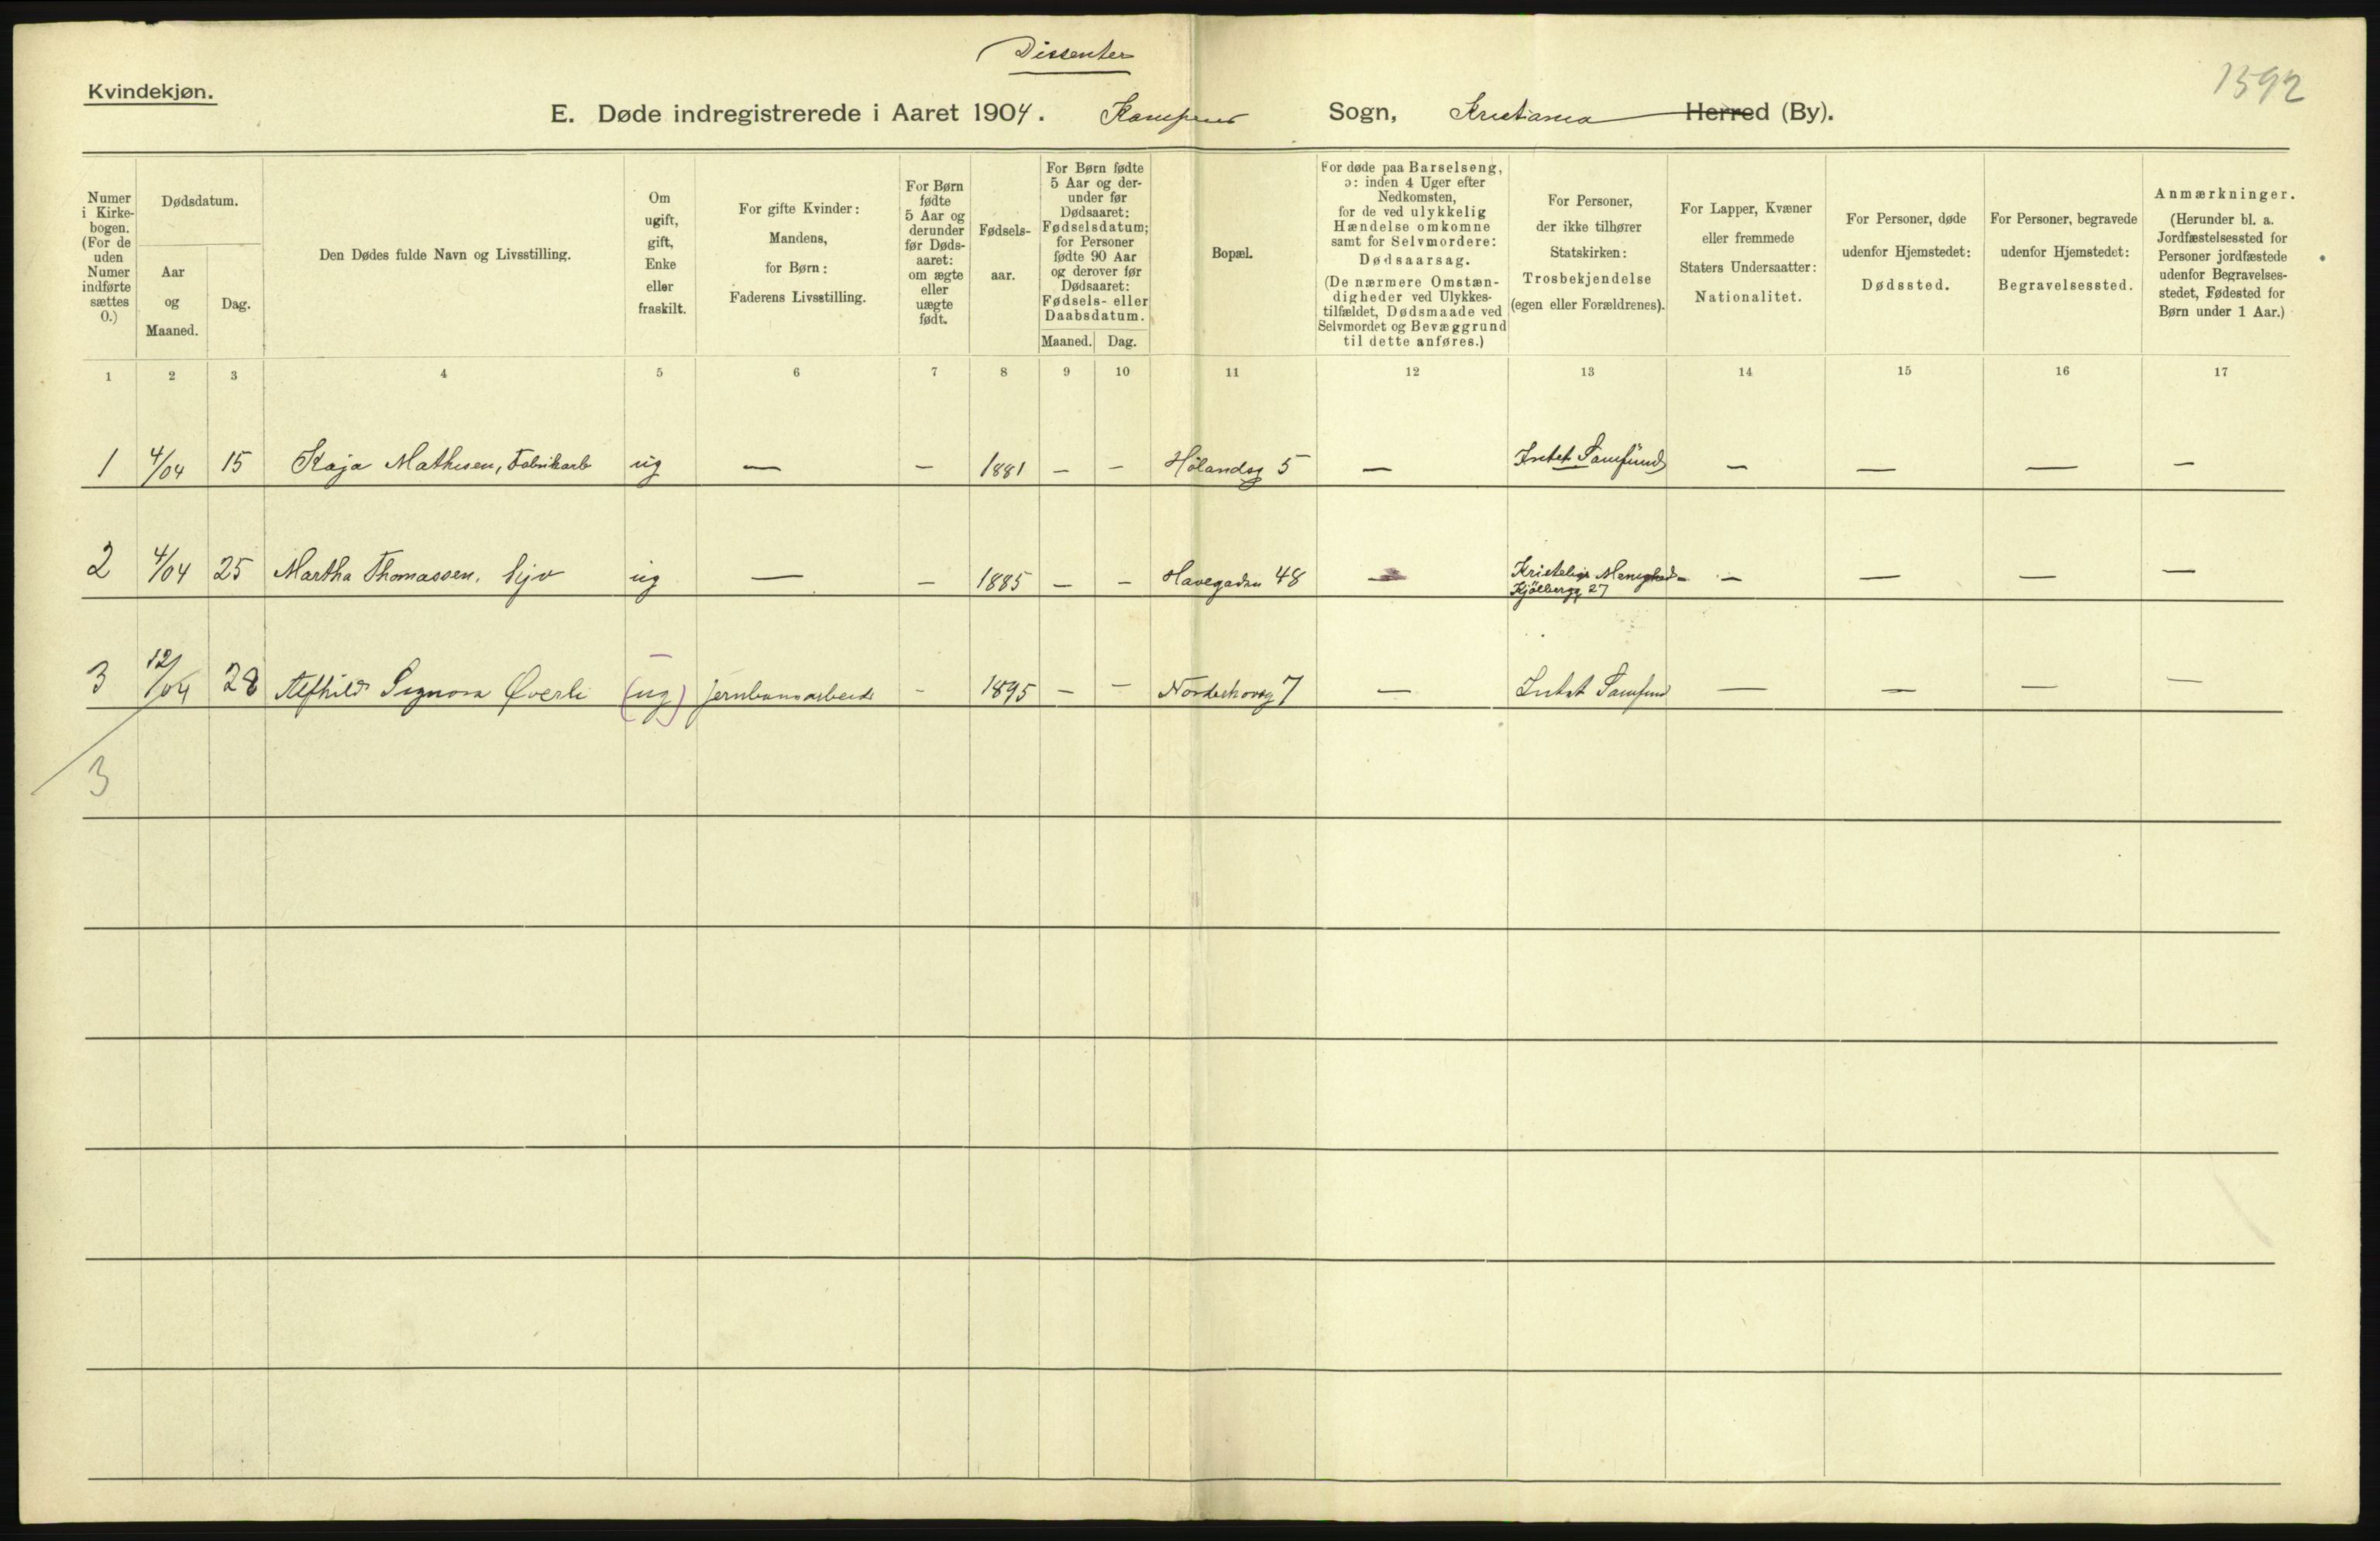 Dissenter
1592
Kvindekjøn.
E. Døde indregistrerede i Aaret 1904. Kampens Sogn, Kristiania Herred (By).
Numer i Kirke-bogen. (For de uden Numer indførte sættes 0.)
Dødsdatum.
Aar og Maaned.
Dag.
Den Dødes fulde Navn og Livsstilling.
Om ugift, gift, Enke eller fraskilt.
For gifte Kvinder: Mandens, for Børn: Faderens Livsstilling.
For Børn fødte 5 Aar og derunder før Døds-aaret: om ægte eller uægte født.
Fødsels-aar.
For Børn fødte 5 Aar og der-under før Dødsaaret: Fødselsdatum; for Personer fødte 90 Aar og derover før Dødsaaret: Fødsels- eller Daabsdatum.
Maaned. Dag.
Bopæl.
For døde paa Barselseng, ɔ: inden 4 Uger efter Nedkomsten, for de ved ulykkelig Hændelse omkomne samt for Selvmordere: Dødsaarsag. (De nærmere Omstæn-digheder ved Ulykkes-tilfældet, Dødsmaade ved Selvmordet og Bevæggrund til dette anføres.)
For Personer, der ikke tilhører Statskirken: Trosbekjendelse (egen eller Forældrenes).
For Lapper, Kvæner eller fremmede Staters Undersaatter: Nationalitet.
For Personer, døde udenfor Hjemstedet: Dødssted.
For Personer, begravede udenfor Hjemstedet: Begravelsessted.
Anmærkninger. (Herunder bl. a. Jordfæstelsessted for Personer jordfæstede udenfor Begravelses-stedet, Fødested for Børn under 1 Aar.)
1 2 3 4 5 6 7 8 9 10 11 12 13 14 15 16 17
1 4/04 15 Kaja Mathisen, Fabrikarb ug — — 1881 — — Hölandsg 5 — Intet Samfund — — — —
2 4/04 25 Martha Thomassen, Syv ug — — 1885 — — Havegaden 48 — Kristelige Menighed — — — — —
Kjölbergg 27
3 12/04 28 Alfhild Signora Øverli (ug) — Jernbanearbeid — 1895 — — Norderhovg 7 — Intet Samfund — — — —
3